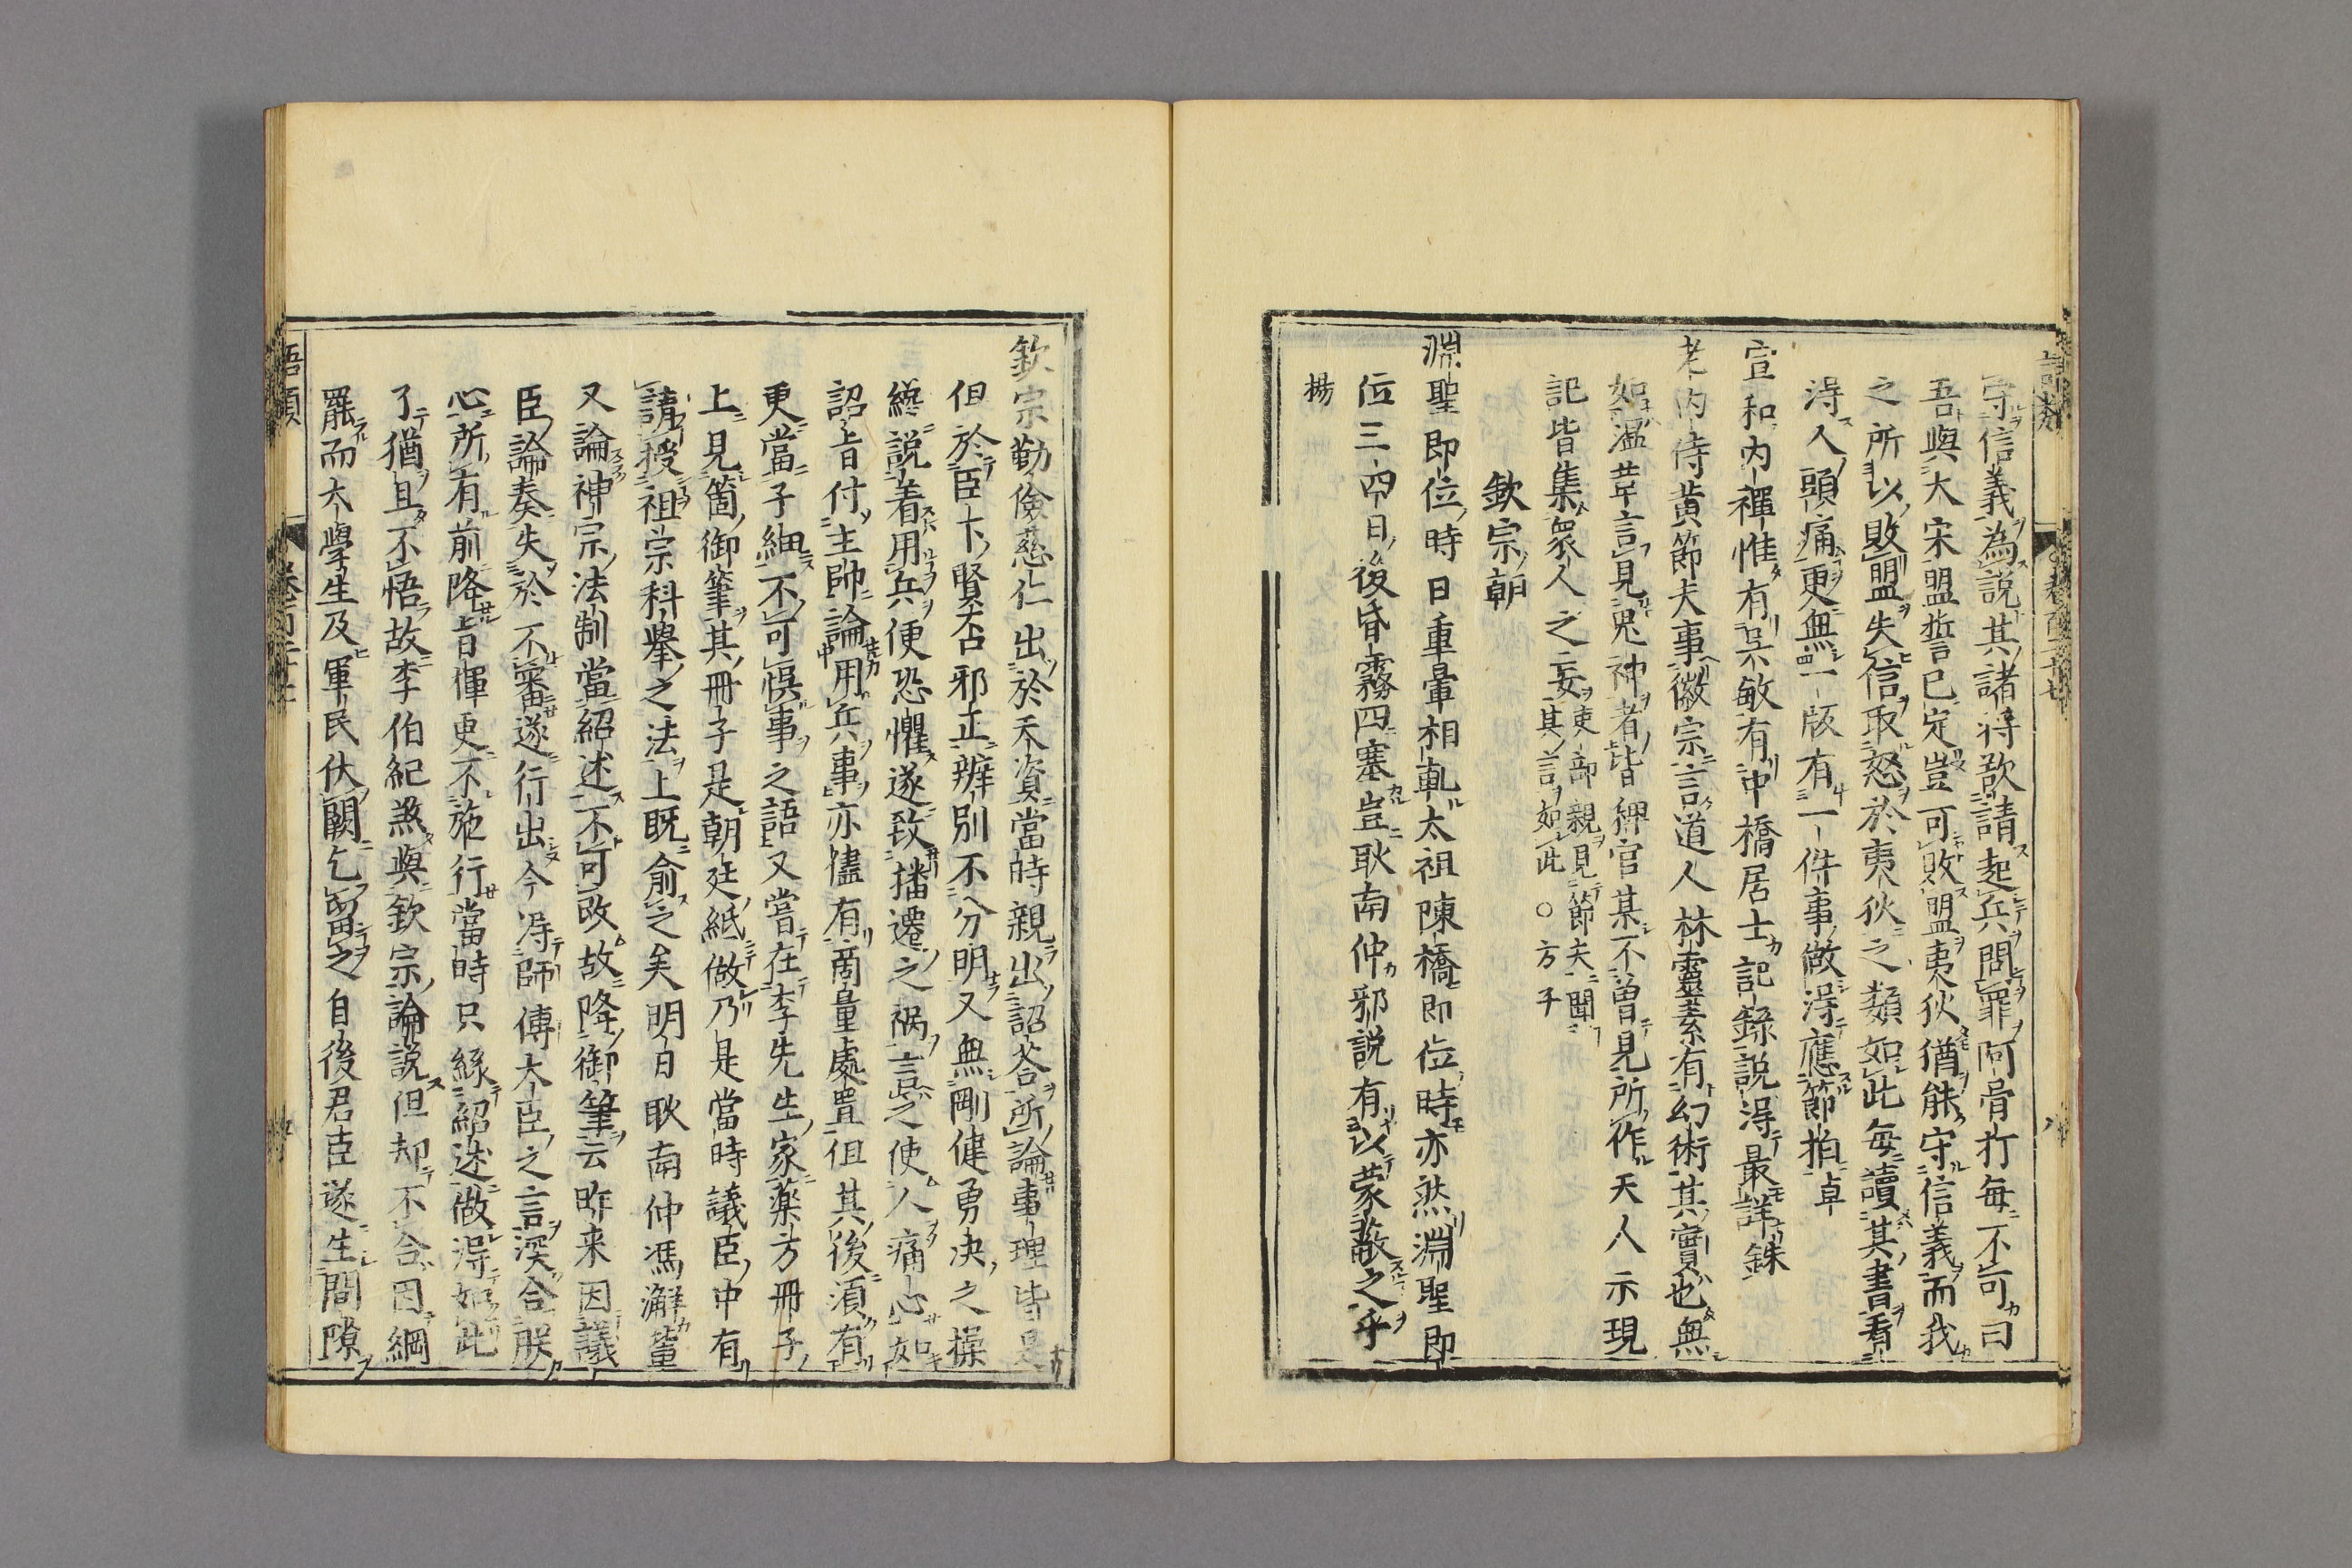 守信義為說其諸將欲請起兵問罪阿骨打每不可曰
吾與大宋盟誓已定豈可敗盟夷狄猶能守信義而我
之所以敗盟失信取怒於夷狄之類如此每讀其書看
得人頭痛更無一版有一件事做得應節拍卓
宣和內禪惟有吳敏有中橋居士記錄說得最詳銖
老內侍黃節夫事徽宗言道人林靈素有幻術其實也無
如溫革言見鬼神者皆稗官某不曾見所作天人示現
記皆集眾人之妄吏部親見節夫聞其言如此○方子
欽宗朝
淵聖即位時日重暈相軋太祖陳橋即位時亦然淵聖即
位三四日後昏霧四塞豈耿南仲邪說有以蒙蔽之乎
揚
欽宗勤儉慈仁出於天資當時親出詔答所論事理皆是
但於臣下賢否邪正辨別不分明又無剛健勇決之操
纔說着用兵便恐懼遂致播遷之禍言之使人痛心如
詔旨付主帥論用兵事亦儘有商量處置但其後須有
更當子細不可悞事之語又嘗在李先生家藥方冊子
上見箇御筆其冊子是朝廷紙做乃是當時議臣中有
請授祖宗科舉之法上既俞之矣明日耿南仲馮澥輩
又論神宗法制當紹述不可改故降御筆云昨来因議
臣論奏失於不審遂行出今得師傅大臣之言深合朕
心所有前降旨揮更不施行當時只緣紹述做得如此
了猶且不悟故李伯紀煞與欽宗論說但却不合因綱
罷而太學生及軍民伏闕乞留之自後君臣遂生間隙
語類
卷百二十七